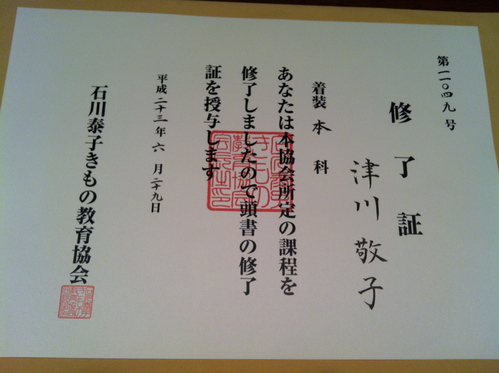 第一一〇四九号
修了証
津川敬子
着装本科
あなたは本協会所定の課程を
修了しましたので頭書の修了
証を授与します
平成二十三年六月二十九日
石川泰子きもの教育協会